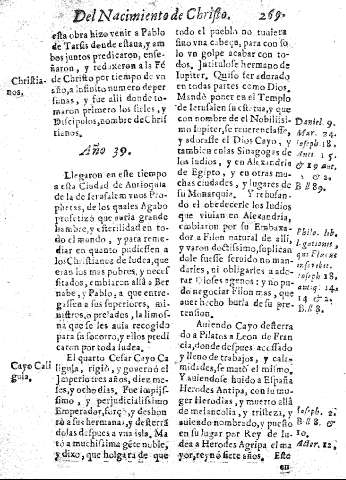 Del Nacimiento de Christo. 269.
esta obra hizo venir a Pablo
de Tarsis donde estaua, y am
bos juntos predicaron, ense-
ñaron, y reduxeron a la Fè
de Christo por tiempo de vn
año, a infinito numero de per
sonas, y fue alli donde to-
maron primero los fieles, y
Discipolos, nombre de Chris
tianos.
Christia-
nos,
Año 39.
Llegaron en este tiempo
a esta Ciudad de Antioquia
de la de Ierusalem vnos Pro-
phetas, de los quales Agabo
profetizò que auria grande
hambre, y esterilidad en to-
do el mundo, y para reme-
diar en quanto pudiessen a
los Christianos de Iudea, que
eran los mas pobres, y neces
sitados, embiaron allà a Ber-
nabe, y Pablo, a que entre-
gassen a sus superiores, mi-
nistros, o prelados, la limos-
na que se les auia recogido
para su socorro, y ellos predi
caron por toda Iudea.
El quarto Cesar Cayo Ca
ligula, rigiò, y gouernò el
Imperio tres años, diez me-
ses, y ocho dias. Fue impijs-
simo, y perjudicialissimo
Emperador, forçò, y deshon
rò a sus hermanas, y desterrò
las despues a vna isla. Ma
tò a muchissima gẽte noble,
y dixo, que holgara de que
Cayo Cali
gula,
todo el pueblo no tuuiera
sino vna cabeça, para con so-
lo vn golpe acabar con to-
dos. Intitulose hermano de
Iupiter. Quiso ser adorado
en todas partes como Dios.
Mandò poner en el Templo
de Ierusalen su estatua, y que
con nombre de el Nobilissi-
mo Iupiter, se reuerenciasse,
y adorasse el Dios Cayo, y
tambien en las Sinagogas de
los Iudios, y en Alexandria
de Egipto, y en otras mu-
chas ciudades, y lugares de
su Monarquia. Y rehusan-
do el obedecerle los Iudios
que viuian en Alexandria,
embiaron por su Embaxa-
dor a Filon natural de allì,
y varon doctissimo, suplican
dole fuesse seruido no man-
darles, ni obligarles a ado-
rar Dioses agenos: y no pu-
do negociar Filon mas, que
auer hecho burla de su pre-
tension.
Auiendo Cayo desterra
do a Pilatos a Leon de Fran
cia, donde despues acossado
y lleno de trabajos, y cala-
midades, se matò el mismo.
Y auiendose huido a España
Herodes Antipa, con su mu-
ger Herodias, y muerto allà
de melancolia, y tristeza, y
auiendo nombrado, y puesto
en su lugar por Rey de Iu-
dea a Herodes Agripa el ma
yor, reynò siete años. Este
en
Daniel 9.
Mar. 24.
Ioseph 18.
Ant. 15.
& 19 ant.
1. & 2.
B. li 89.
Philo. lib.
Legationis,
Ioseph 18.
antiq. 14.
14 & 2.
B. li 8.
Ioseph. 2.
B li 8. &
10.
Actor. 12.